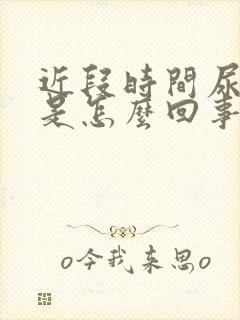 近段時間尿
是怎麼回事
o今我来思o